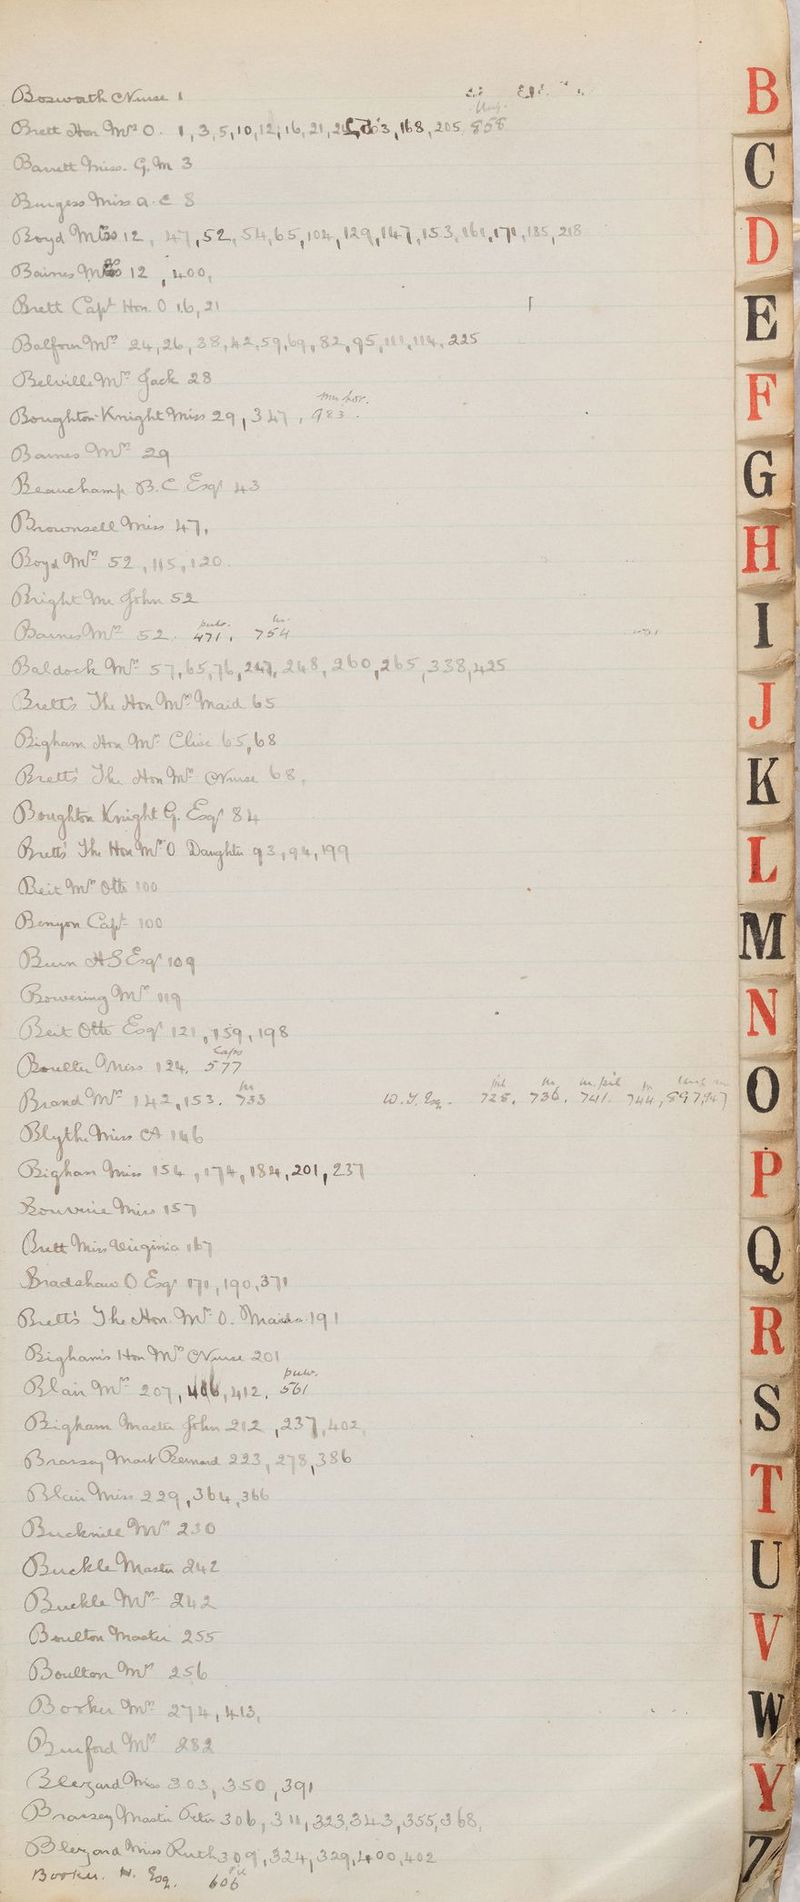 Bosworth Nurse 1
Brett Hon Mrs O. 1, 3, 5, 10, 12, 16, 21, 168, 205, 858
Barrett Miss. G. M 3
Burgess Miss A. E 8
Boyd Miss 12, 47, 52, 54, 65, 104, 129, 147, 153, 161, 171, 185, 218
Baines 12, 400,
Brett Capt Hon. O 16, 21
Balfour Mrs 24, 26, 38, 42, 59, 69, 82, 95, 111, 114, 225
Belville Mrs Jack 28
Boughton-Knight Miss 29, 347, 983.
Barnes Mrs 29
Beauchamp B. C Esqr 43
Brownsell Miss 47,
Boyd Mrs 52, 115, 120.
Bright Mrs John 52
Barnes Mrs 52. 471, 754
Baldock Mrs 57, 65, 76, 247, 248, 260, 265, 338, 425
Brett's The Hon Mrs Maid 65
Bigham Hon Mrs Clive 65, 68
Brett's The Hon Mrs Nurse 68,
Boughton Knight G. Esqr 84
Bretts' The Hon Mrs O Daughter 93, 94, 199
Beit Mrs Otto 100
Benyon Capt 100
Burn H S Esqr 109
Bowering Mrs 119
Beit Otto Esqr 121, 159, 198
Caps
Boulter Miss 124, 577
Brand Mrs 142, 153. 733 W. J. Esq. 728, 736, 741, 744, 897, 947
Blythe Miss A 146
Bigham Miss 154, 174, 184, 201, 237
Bouverie Miss 157
Brett Miss Virginia 167
Bradshaw O Esqr 171, 190, 371
Brett's The Hon. Mrs O. Maid 191
Bigham's Hon Mrs Nurse 201
Blair Mrs 207, 406, 412, 561
Bigham Master John 212, 237, 402,
Brassey Mast Bernard 223, 278, 386
Blair Miss 229, 364, 366
Bucknill Mrs 230
Buckle Master 242
Buckle Mrs 242
Boulton Master 255
Boulton Mrs 256
Booker Mrs 274, 413,
Burford Mrs 282
Blezard Miss 303, 350, 391
Brassey Master Peter 306, 311, 323, 343, 355, 368,
Blezard Miss Ruth 309, 324, 329, 400, 402
Booker. H. Esq. 606
B
C
D
E
F
G
H
I
J
K
L
M
N
O
P
Q
R
S
T
U
V
W
Y
Z